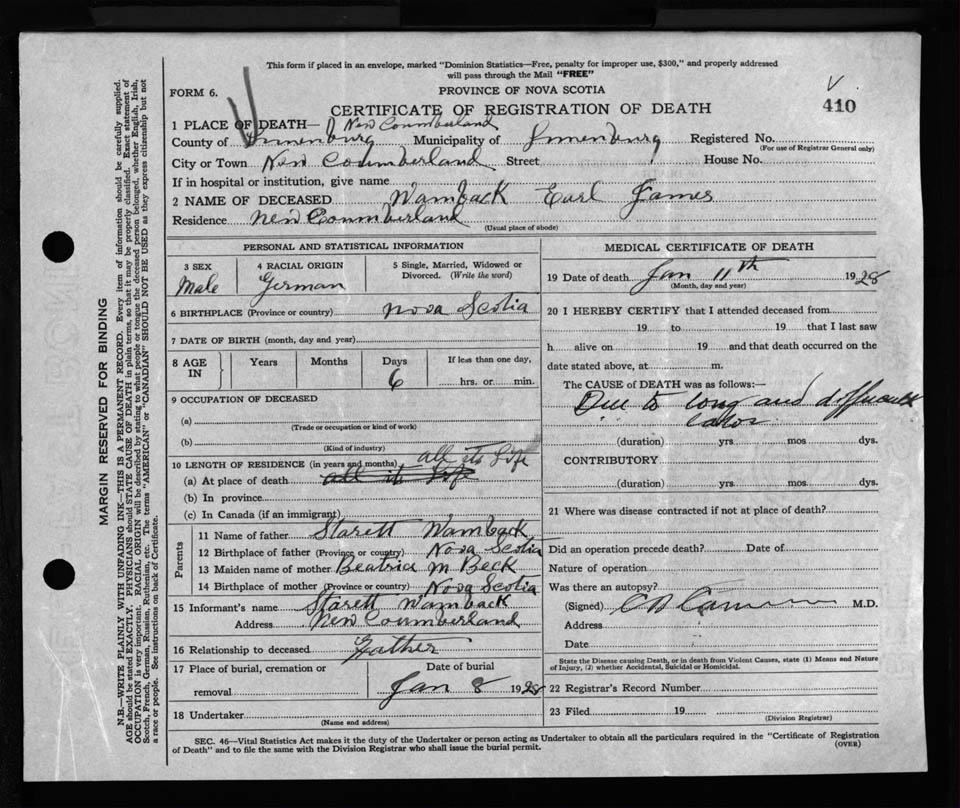 This form if placed in an envelope, marked "Dominion Statistics—Free, penalty for improper use, $300," and properly addressed
will pass through the Mail "FREE"
FORM 6.
PROVINCE OF NOVA SCOTIA
CERTIFICATE OF REGISTRATION OF DEATH
410
1 PLACE OF DEATH— New Coumberland
County of Lunenburg Municipality of Lunenburg Registered No.
(For use of Registrar General only)
City or Town New Coumberland Street House No.
If in hospital or institution, give name
2 NAME OF DECEASED Wamback Earl James
Residence New Coumberland
(Usual place of abode)
PERSONAL AND STATISTICAL INFORMATION
3 SEX 4 RACIAL ORIGIN 5 Single, Married, Widowed or
Divorced. (Write the word)
Male German
6 BIRTHPLACE (Province or country) Nova Scotia
7 DATE OF BIRTH (month, day and year)
8 AGE IN Years Months Days If less than one day,
6 hrs. or min.
9 OCCUPATION OF DECEASED
(a)
(Trade or occupation or kind of work)
(b)
(Kind of industry)
10 LENGTH OF RESIDENCE (in years and months) all its Life
(a) At place of death all its Life
(b) In province
(c) In Canada (if an immigrant)
Parents
11 Name of father Starett Wamback
12 Birthplace of father (Province or country) Nova Scotia
13 Maiden name of mother Beatrice M Beck
14 Birthplace of mother (Province or country) Nova Scotia
15 Informant's name Starett Wamback
Address New Coumberland
16 Relationship to deceased Father
17 Place of burial, cremation or removal
Date of burial
Jan 8 1928
18 Undertaker
(Name and address)
MEDICAL CERTIFICATE OF DEATH
19 Date of death Jan 11th 1928
(Month, day and year)
20 I HEREBY CERTIFY that I attended deceased from
19 to 19 that I last saw
h alive on 19 and that death occurred on the
date stated above, at m.
The CAUSE of DEATH was as follows:—
Due to long and difficult
labor
(duration) yrs. mos. dys.
CONTRIBUTORY
(duration) yrs. mos. dys.
21 Where was disease contracted if not at place of death?
Did an operation precede death? Date of
Nature of operation
Was there an autopsy?
(Signed) M.D.
Address
Date
State the Disease causing Death, or in death from Violent Causes, state (1) Means and Nature
of Injury, (2) whether Accidental, Suicidal or Homicidal.
22 Registrar's Record Number
23 Filed 19
(Division Registrar)
SEC. 46—Vital Statistics Act makes it the duty of the Undertaker or person acting as Undertaker to obtain all the particulars required in the "Certificate of Registration
of Death" and to file the same with the Division Registrar who shall issue the burial permit.
(OVER)
MARGIN RESERVED FOR BINDING
N.B.—WRITE PLAINLY WITH UNFADING INK—THIS IS A PERMANENT RECORD. Every item of information should be carefully supplied.
AGE should be stated EXACTLY. PHYSICIANS should STATE CAUSE OF DEATH in plain terms, so that it may be properly classified. Exact statement of
OCCUPATION is very important. RACIAL ORIGIN will be described by stating to what people or tongue the deceased person belonged, whether English, Irish,
Scotch, French, German, Russian, Ruthenian, etc. The terms "AMERICAN" or "CANADIAN" SHOULD NOT BE USED as they express citizenship but not
a race or people. See instructions on back of Certificate.